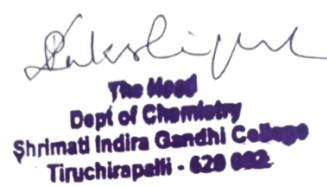 The Head
Dept of Chemistry
Shrimati Indira Gandhi College
Tiruchirapalli - 620 002